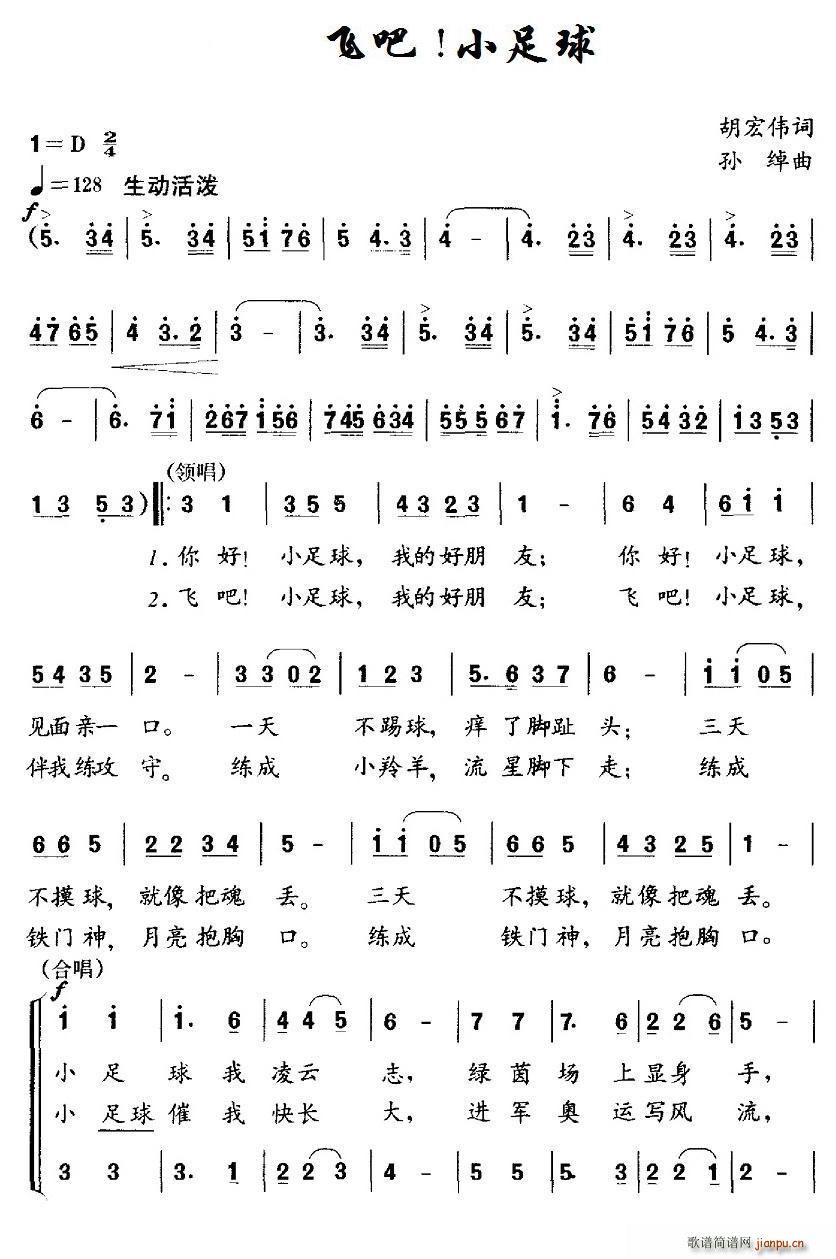 飞吧！小足球
胡宏伟词
1=D 2/4
孙 绰曲
♩=128 生动活泼
f
(5. 34 | 5. 34 | 51 76 | 5 4.3 | 4 - | 4. 23 | 4. 23 | 4. 23 |
47 65 | 4 3.2 | 3 - | 3. 34 | 5. 34 | 5. 34 | 51 76 | 5 4.3 |
6 - | 6. 71 | 267 156 | 745 634 | 555 567 | 1. 76 | 54 32 | 13 53 |
(领唱)
13 53) ‖: 3 1 | 35 5 | 43 23 | 1 - | 6 4 | 61 1 |
1. 你 好！ 小足球， 我的好朋 友； 你 好！ 小足球，
2. 飞 吧！ 小足球， 我的好朋 友； 飞 吧！ 小足球，
54 35 | 2 - | 33 02 | 12 3 | 5. 6 37 | 6 - | 11 05 |
见面亲一 口。 一天 不踢球， 痒了脚趾 头； 三天
伴我练攻 守。 练成 小羚羊， 流星脚下 走； 练成
66 5 | 22 34 | 5 - | 11 05 | 66 5 | 43 25 | 1 - |
不摸球， 就像把魂 丢。 三天 不摸球， 就像把魂 丢。
铁门神， 月亮抱胸 口。 练成 铁门神， 月亮抱胸 口。
(合唱)
f
1 1 | 1. 6 | 44 5 | 6 - | 7 7 | 7. 6 | 22 6 | 5 - |
小 足 球 我 凌云 志， 绿 茵 场 上 显身 手，
小 足球 催 我 快长 大， 进 军 奥 运 写风 流，
3 3 | 3. 1 | 22 3 | 4 - | 5 5 | 5. 3 | 22 1 | 2 - |
歌谱简谱网
jianpu.cn